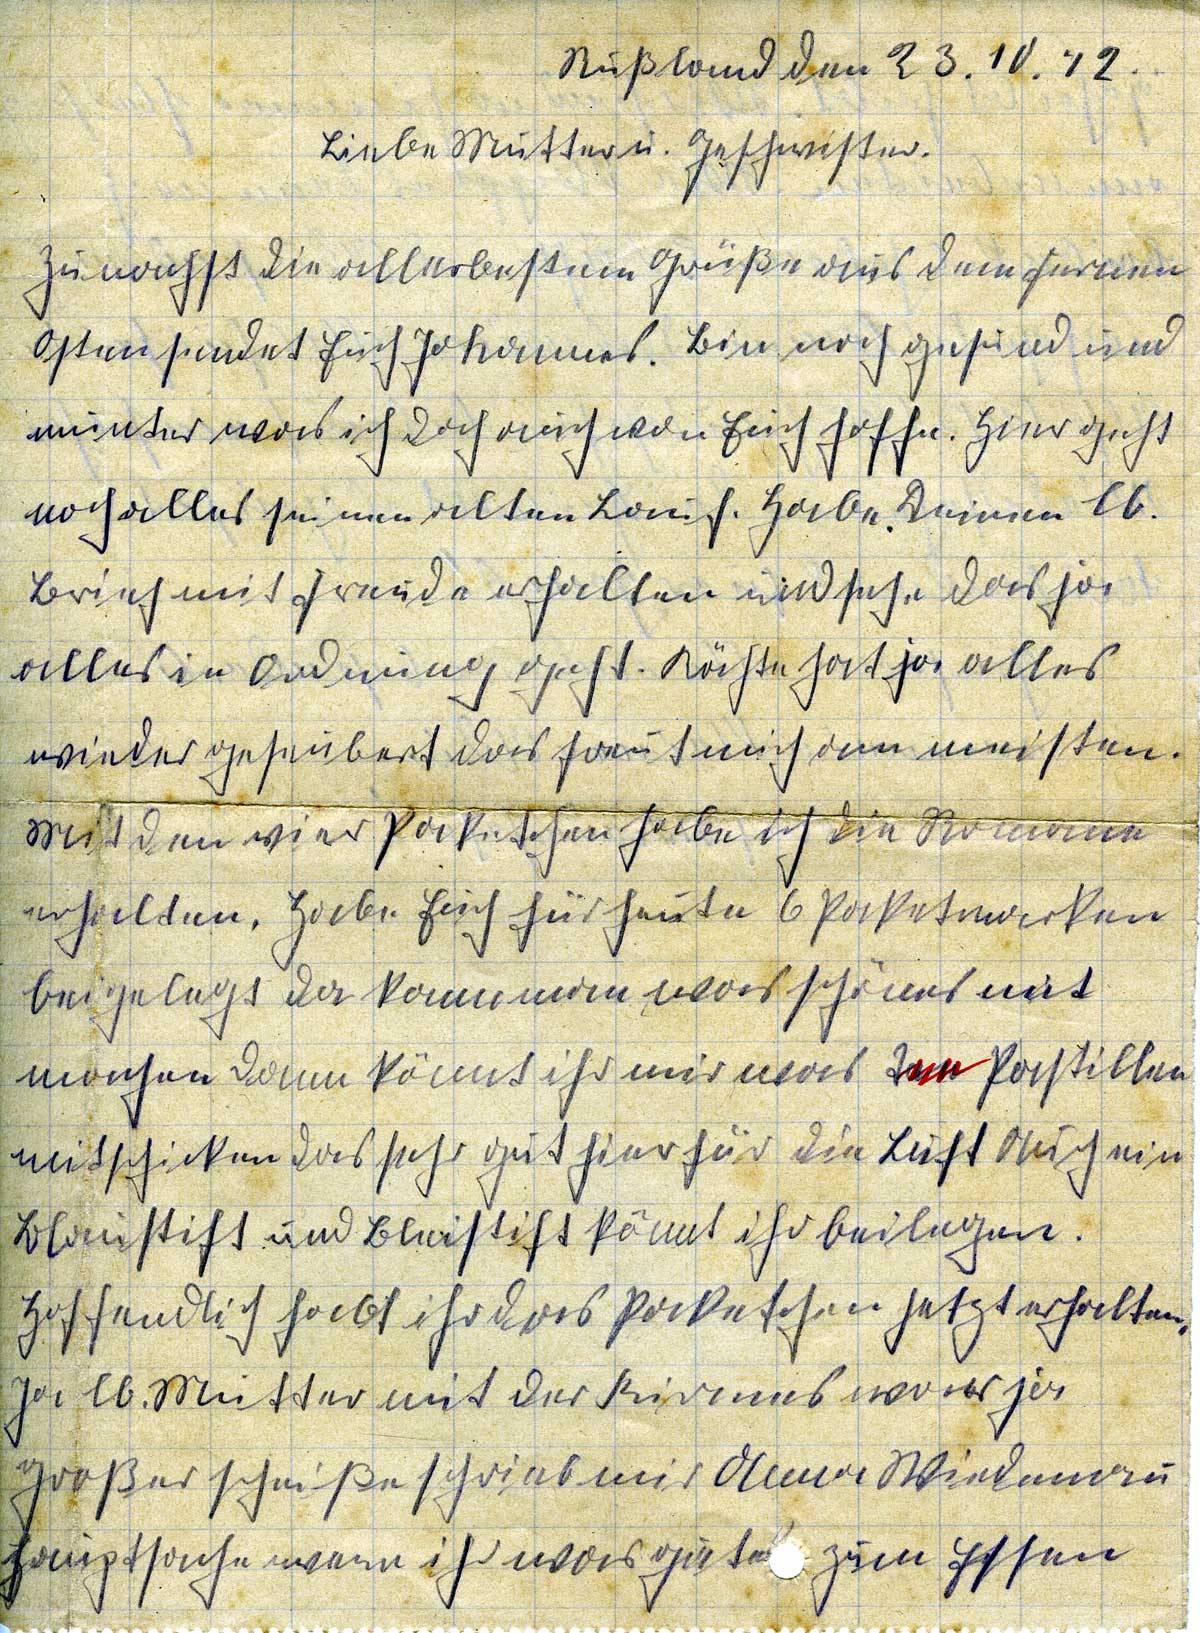 Rußland den 23.10.42.
Liebe Mutter u. Geschwister.
Zunachst die allerbesten Grüße aus dem fernen
Osten sendet Euch Johannes. Bin noch gesund und
munter was ich doch auch von Euch hoffe. Hier geht
noch alles seinen alten Lauf. Habe Deinen lb.
Brief mit Freude erhalten und sehe das ja
alles in Ordnung geht. Käthe hat ja alles
wieder geseubert das freut mich am meisten.
Mit den vier Paketchen habe ich die Romane
erhalten. Habe Euch für heute 6 Paketmarken
beigelegt da kann man was schönes mit
machen dann könnt ihr mir was Pastillen
mitschicken das sehr gut hier für die Luft Auch ein
Blaustift und Bleistift könnt ihr beilegen.
Hoffendlich habt ihr das Paketchen jetzt erhalten.
Ja lb. Mutter mit der Kirmes war ja
großer scheiße schrieb mir Anna Wiedemau
hauptsache wenn ihr was gutes zum Essen